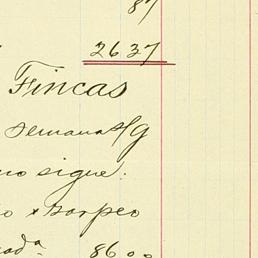 87
2637
Fincas
semana s/g
no sigue.
o x Torpeo
ada 86 00